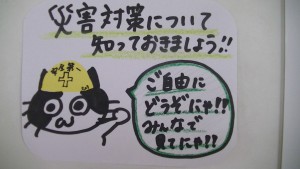 災害対策について
知っておきましょう!!
安全第一
ご自由に
どうぞにゃ!!
みんなで
見てにゃ!!